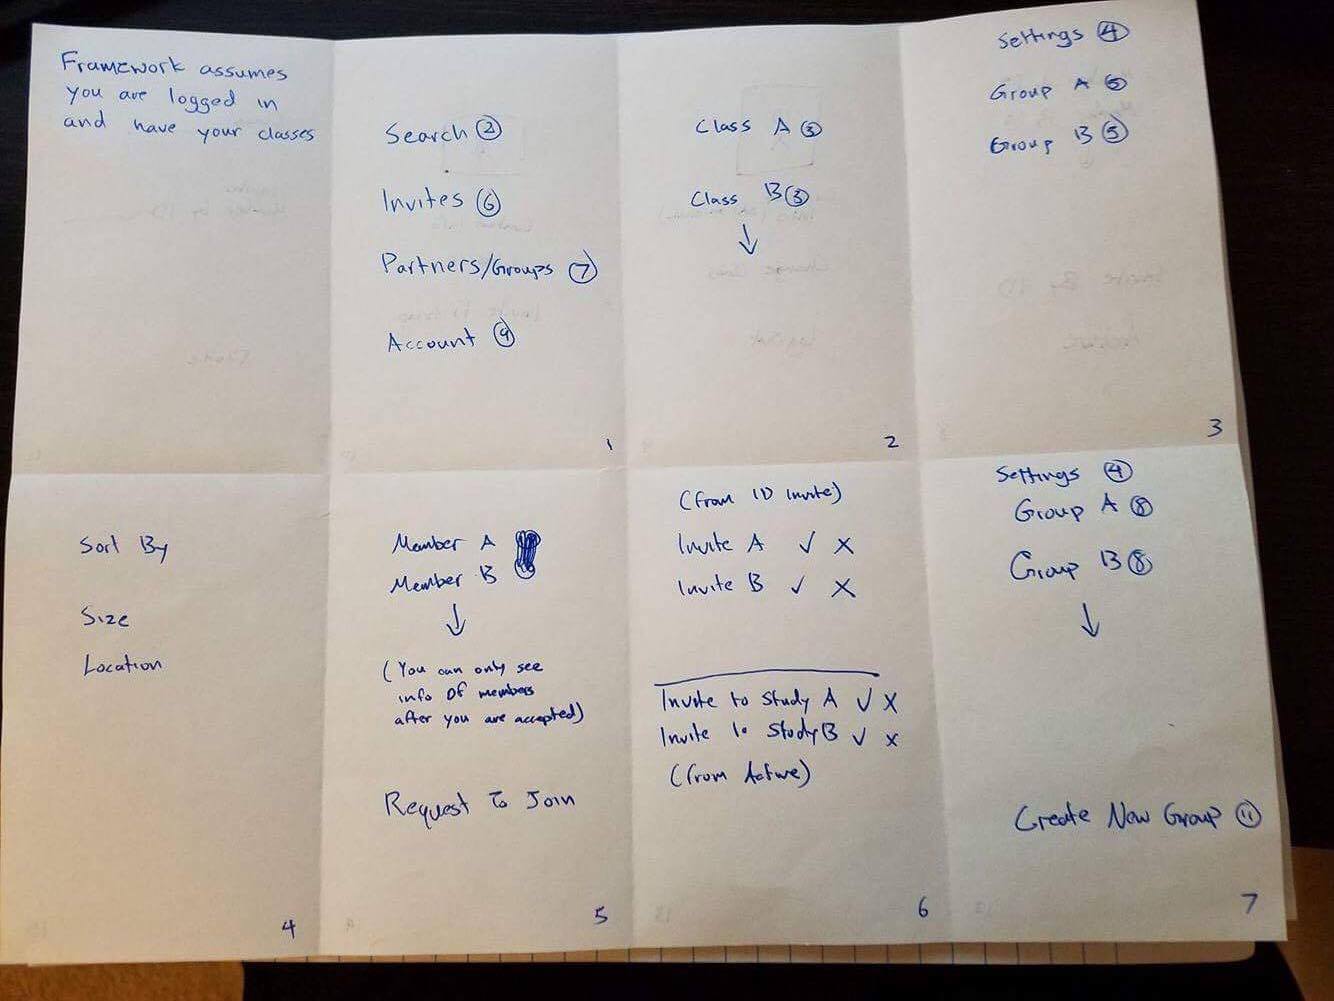 Framework assumes
you are logged in
and have your classes
Search ②
Invites ⑥
Partners/Groups ⑦
Account ⑨
1
Class A ③
Class B ③
↓
2
Settings ④
Group A ⑤
Group B ⑤
3
Sort By
Size
Location
4
Member A
Member B
↓
(You can only see
info of members
after you are accepted)
Request To Join
5
(from ID invite)
Invite A ✓ X
Invite B ✓ X
Invite to Study A ✓ X
Invite to Study B ✓ X
(from Active)
6
Settings ④
Group A ⑧
Group B ⑧
↓
Create New Group ⑪
7